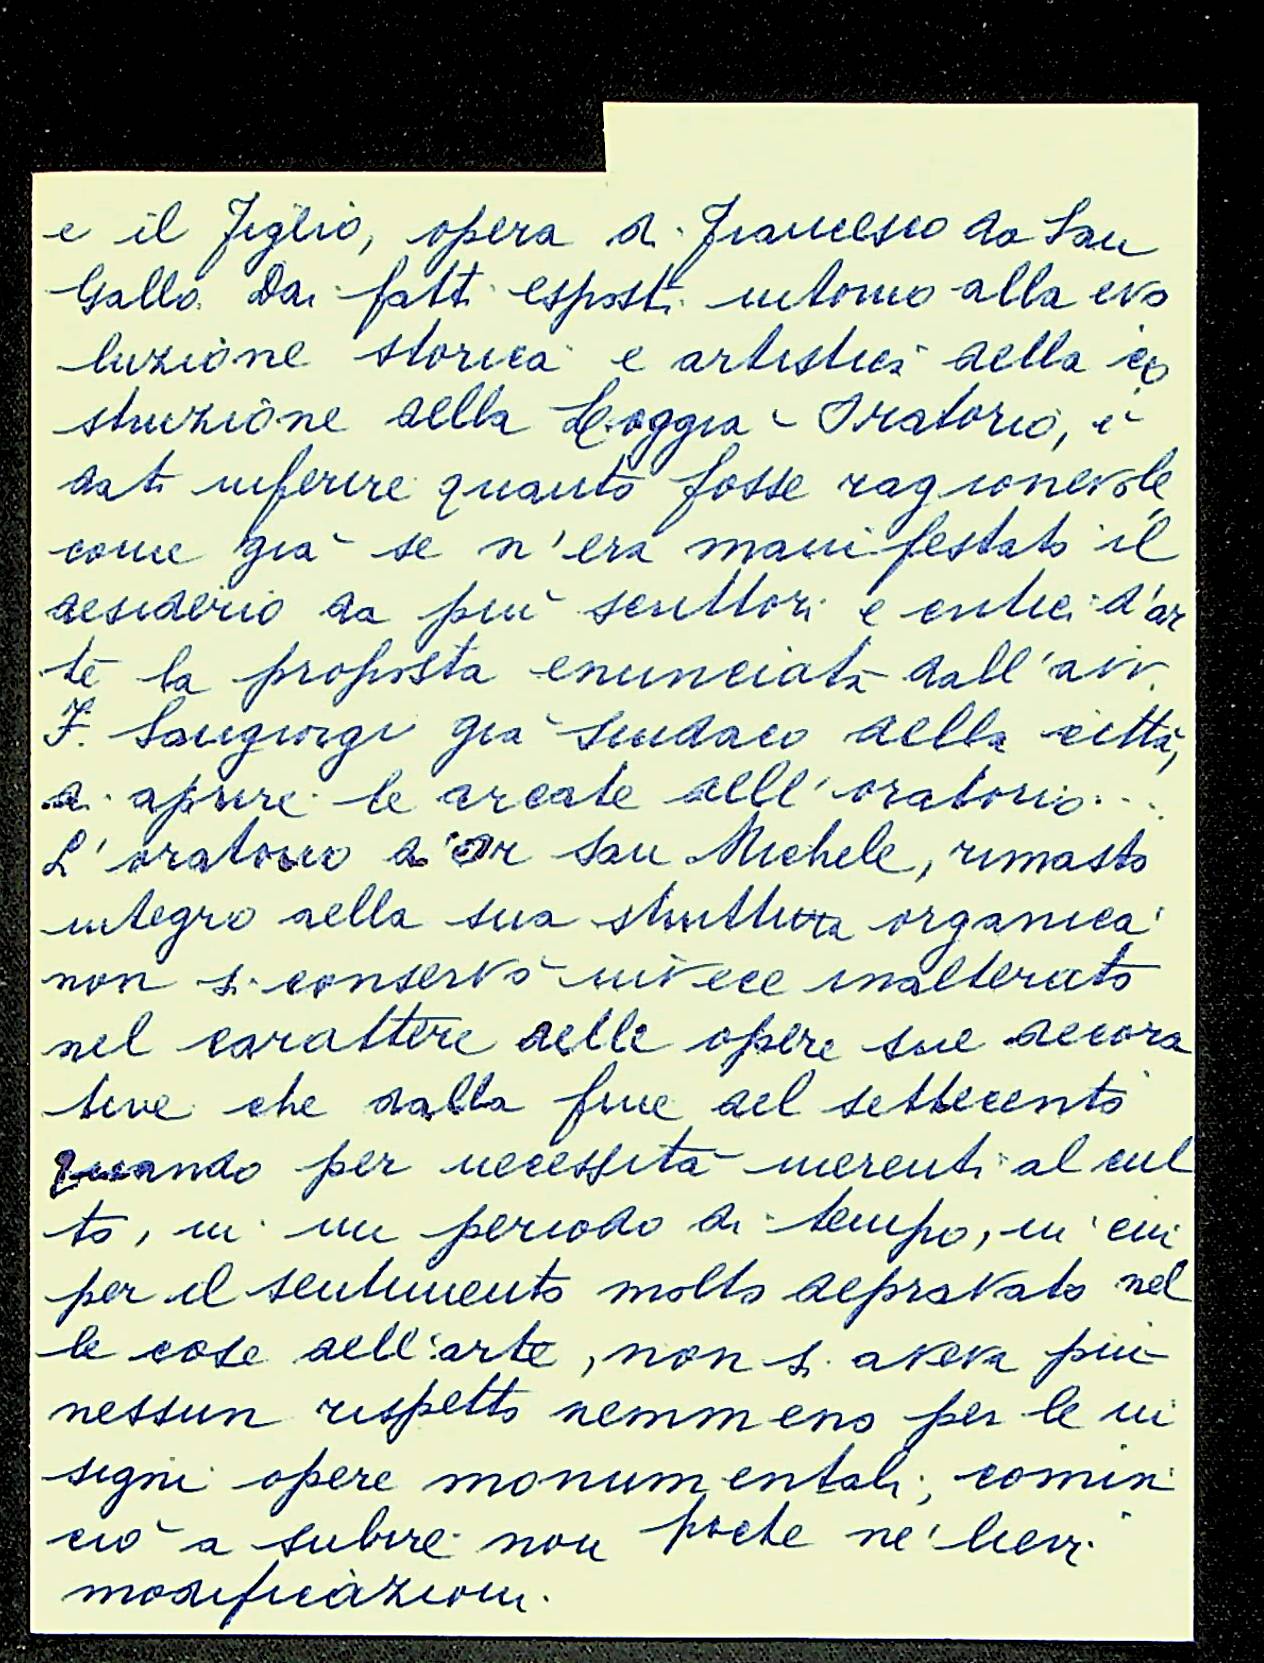 e il Figlio, opera di Francesco da San
Gallo. Dai fatti esposti intorno alla evo
luzione storica e artistica della co
struzione della Loggia - Oratorio, è
dati inferire quanto fosse ragionevole
come già se n'era manifestato il
desiderio da più scrittori e critici d'ar
te la proposta enunciata dall'avv.
F. Sangiorgi già sindaco della città,
di aprire le arcate dell'oratorio...
L'oratorio d'Or San Michele, rimasto
integro nella sua struttura organica
non si conservò invece inalterato
nel carattere delle opere sue decora
tive che dalla fine del settecento
Quando per necessità inerenti al cul
to, in un periodo di tempo, in cui
per il sentimento molto depravato nel
le cose dell'arte, non si aveva più
nessun rispetto nemmeno per le in
signi opere monumentali; comin
ciò a subire non poche nè lievi
modificazioni.